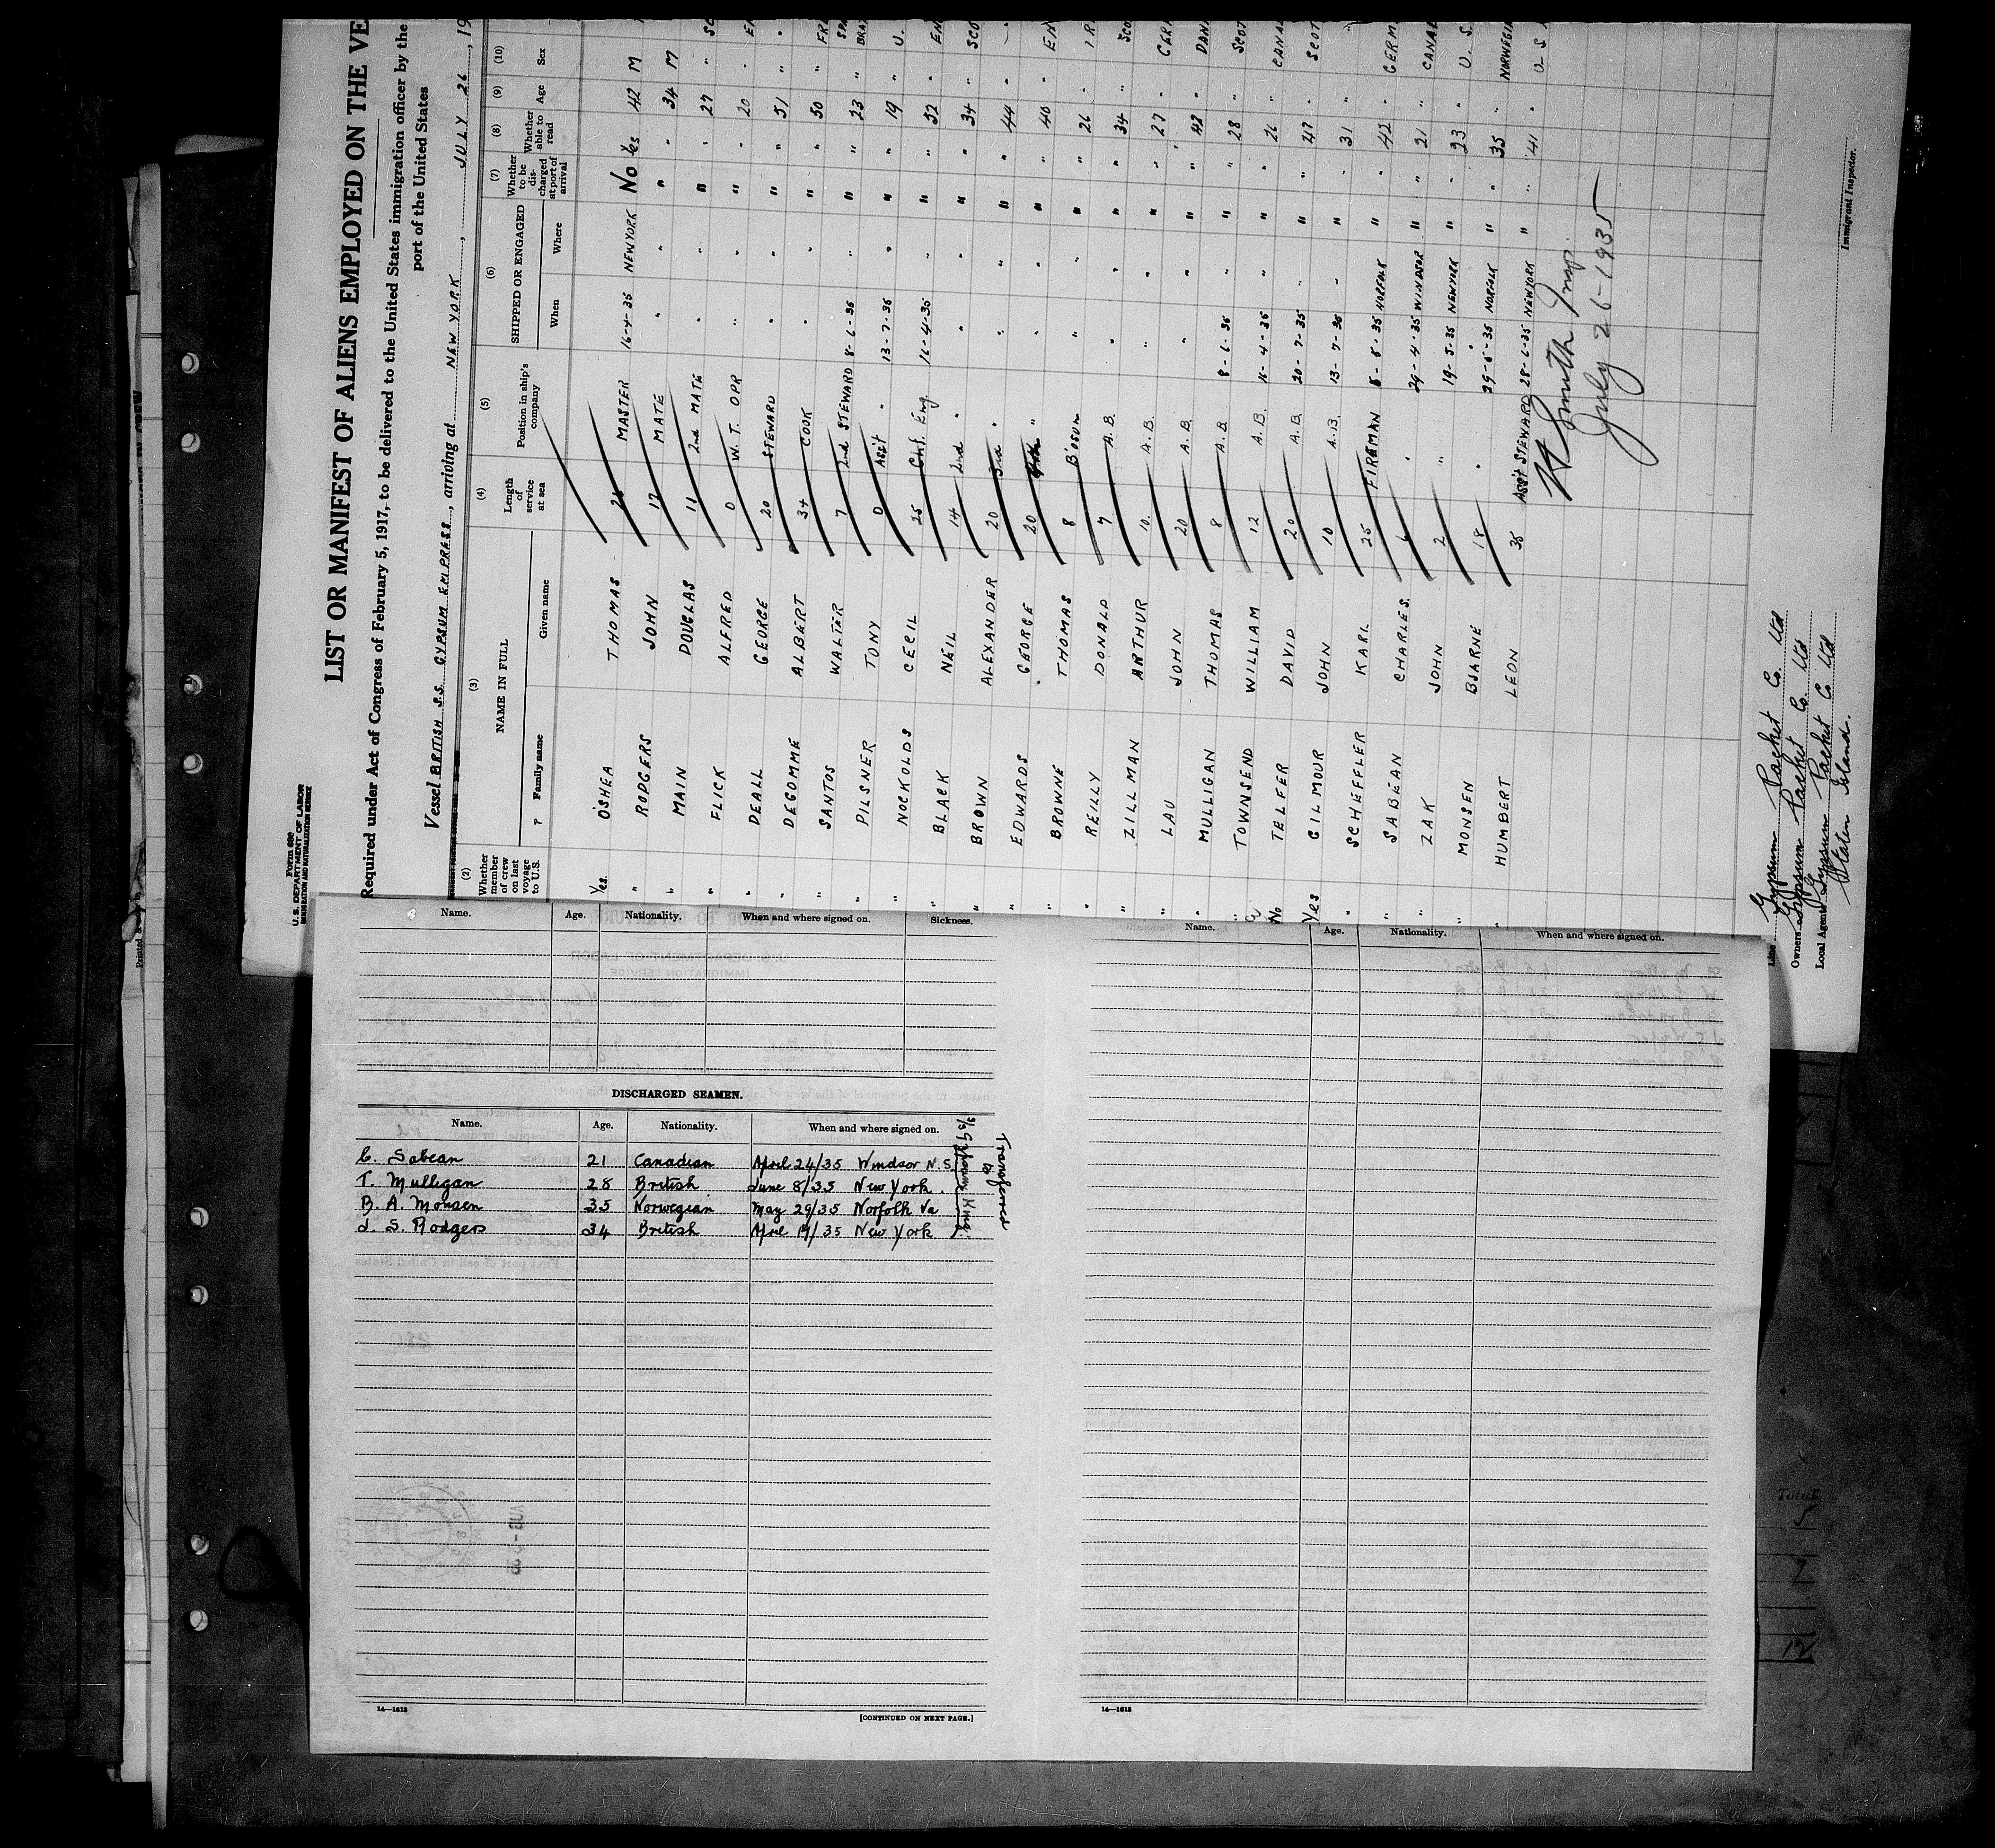 Form 689
U. S. DEPARTMENT OF LABOR
IMMIGRATION AND NATURALIZATION SERVICE
LIST OR MANIFEST OF ALIENS EMPLOYED ON THE VE
Required under Act of Congress of February 5, 1917, to be delivered to the United States immigration officer by the
port of the United States
Vessel BRITISH S.S. GYPSUM EMPRESS, arriving at NEW YORK, JULY 26, 19
(2) (3) (4) (5) (6) (7) (8) (9) (10)
Whether member of crew on last voyage to U.S. NAME IN FULL Length of service at sea Position in ship's company SHIPPED OR ENGAGED Whether to be discharged at port of arrival Whether able to read Age Sex
Family name Given name When Where
Yes. O'SHEA THOMAS MASTER 16-4-35 NEW YORK No Yes 42 M
" RODGERS JOHN 17 MATE " " " " 34 M
" MAIN DOUGLAS 11 2nd MATE " " " " 27 " SC
" ELICK ALFRED 0 W. T. OPR " " " " 20 " E
" DEALL GEORGE 20 STEWARD " " " " 51 " "
" DECOMME ALBERT 34 COOK " " " " 50 " FR
" SANTOS WALTER 7 2nd STEWARD 8-6-35 " " " 23 "
" PILSNER TONY 0 Ass't " 13-7-35 " " " 19 " U.
" NOCKOLDS CECIL 25 Chf. Eng. 16-4-35 " " " 52 " EN
" BLACK NEIL 14 2nd " " " " " 34 " SCO
" BROWN ALEXANDER 20 3rd " " " " " 44 "
" EDWARDS GEORGE 20 4th " " " " " 40 " EN
" BROWNE THOMAS 8 B'osun " " " " 26 " IR
" REILLY DONALD 7 A.B. " " " " 34 " SCO
" ZILLMAN ARTHUR 10 A.B. " " " " 27 " GER
" LAU JOHN 20 A.B. " " " " 42 " DAN
" MULLIGAN THOMAS 8 A.B. 8-6-35 " " " 28 " SCOT
" TOWNSEND WILLIAM 12 A.B. 16-4-35 " " " 26 " CANA
No TELFER DAVID 20 A.B. 20-7-35 " " " 47 " SCOT
Yes GILMOUR JOHN 10 A.B. 13-7-35 " " " 31 " "
" SCHEFFLER KARL 25 FIREMAN 5-5-35 NORFOLK " " 42 " GERM
" SABEAN CHARLES. 6 " 24-4-35 WINDSOR " " 21 " CANA
" ZAK JOHN 2 " 19-5-35 NEW YORK " " 23 " U. S.
" MONSEN BJARNE 18 " 29-5-35 NORFOLK " " 35 " NORWEGIA
" HUMBERT LEON 35 Ass't STEWARD 28-6-35 NEW YORK " " 41 " U S
Smith Insp.
July 26-1935
Line Gypsum Packet Co. Ltd
Owners Gypsum Packet Co. Ltd
Local Agents Gypsum Packet Co Ltd
Staten Island.
Immigrant Inspector.
Name. Age. Nationality. When and where signed on. Sickness.
DISCHARGED SEAMEN.
Name. Age. Nationality. When and where signed on.
C. Sabean 21 Canadian April 24/35 Windsor N.S.
T. Mulligan 28 British June 8/35 New York.
B. A. Monsen 35 Norwegian May 29/35 Norfolk Va
J. S. Rodgers 34 British April 17/35 New York
Transferred to
S/S Gypsum King
16—1612
[CONTINUED ON NEXT PAGE.]
Name. Age. Nationality. When and where signed on.
16—1612
Total
5
7
12